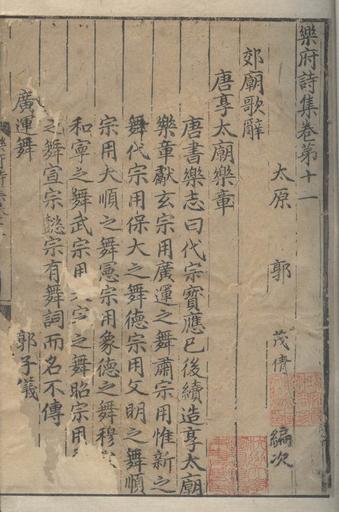 樂府詩集卷第十一
太原 郭 茂倩 編次
郊廟歌辭
唐享太廟樂章
唐書樂志曰代宗寶應已後續造享太廟
樂章獻玄宗用廣運之舞肅宗用惟新之
舞代宗用保大之舞德宗用文明之舞順
宗用大順之舞憲宗用象德之舞穆
和寧之舞武宗用 之舞昭宗用
之舞宣宗懿宗有舞詞而名不傳
廣運舞 郭子儀